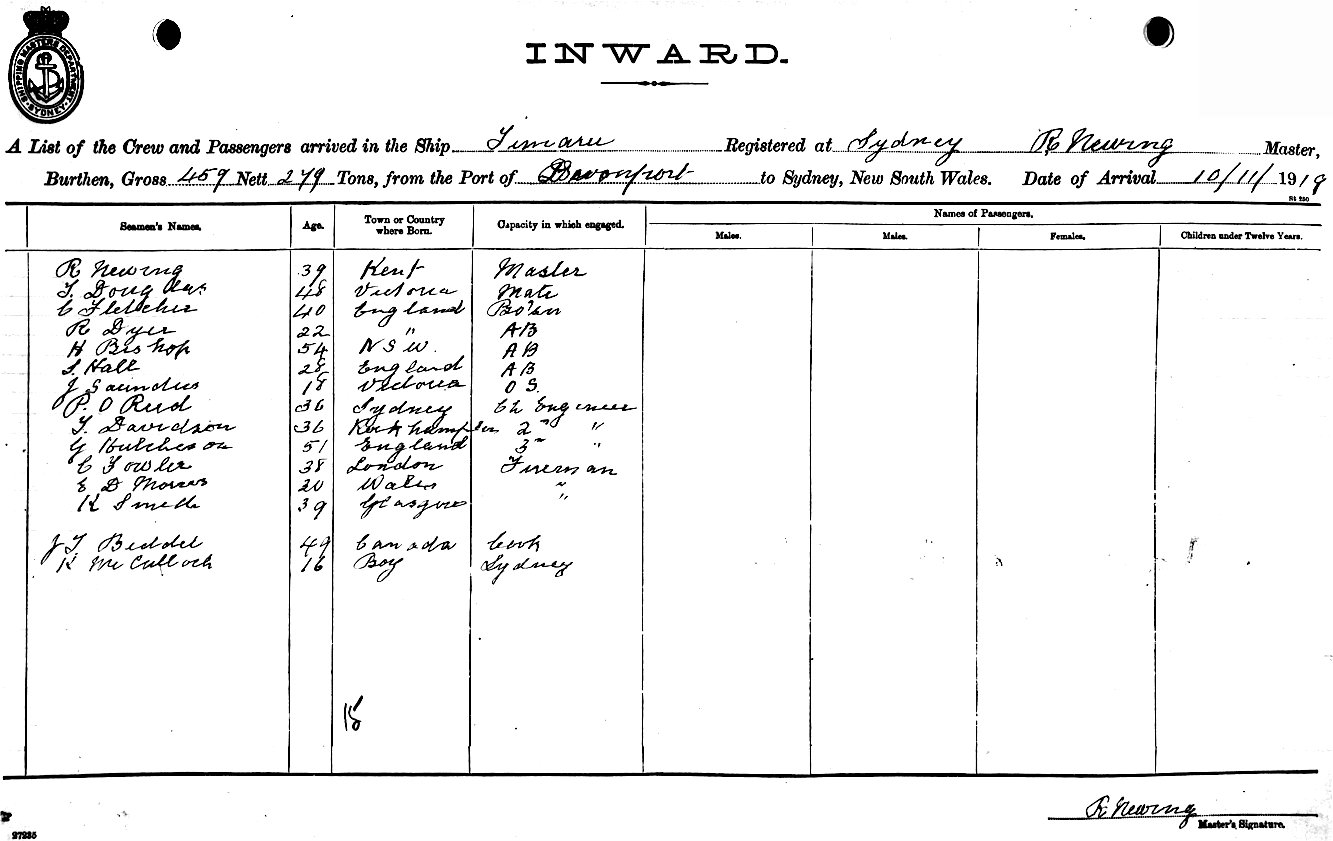 SHIPPING MASTERS DEPARTMENT SYDNEY
INWARD.
A List of the Crew and Passengers arrived in the Ship Timaru Registered at Sydney R Newing Master,
Burthen, Gross 459 Nett 279 Tons, from the Port of Devonport to Sydney, New South Wales. Date of Arrival 10/11/1919
Seamen's Names. Age. Town or Country where Born. Capacity in which engaged. Names of Passengers.
Males. Males. Females. Children under Twelve Years.
R Newing 39 Kent Master
T. Douglas 48 Victoria Mate
C Fletcher 40 England Bo'sn
R Dyer 22 " AB
H Bishop 54 N S W. AB
S Hall 28 England AB
J Saunders 18 Victoria O S.
P. O Reid 36 Sydney Ch Engineer
T. Davidson 36 Rockhampton 2nd "
G Hutcheson 51 England 3rd "
C Fowler 38 London Fireman
E D 20 Wales "
K Smith 39 Glasgow "
J T. Beddel 49 Canada Cook
K McCulloch 16 Boy Sydney
15
R Newing
Master's Signature.
27235